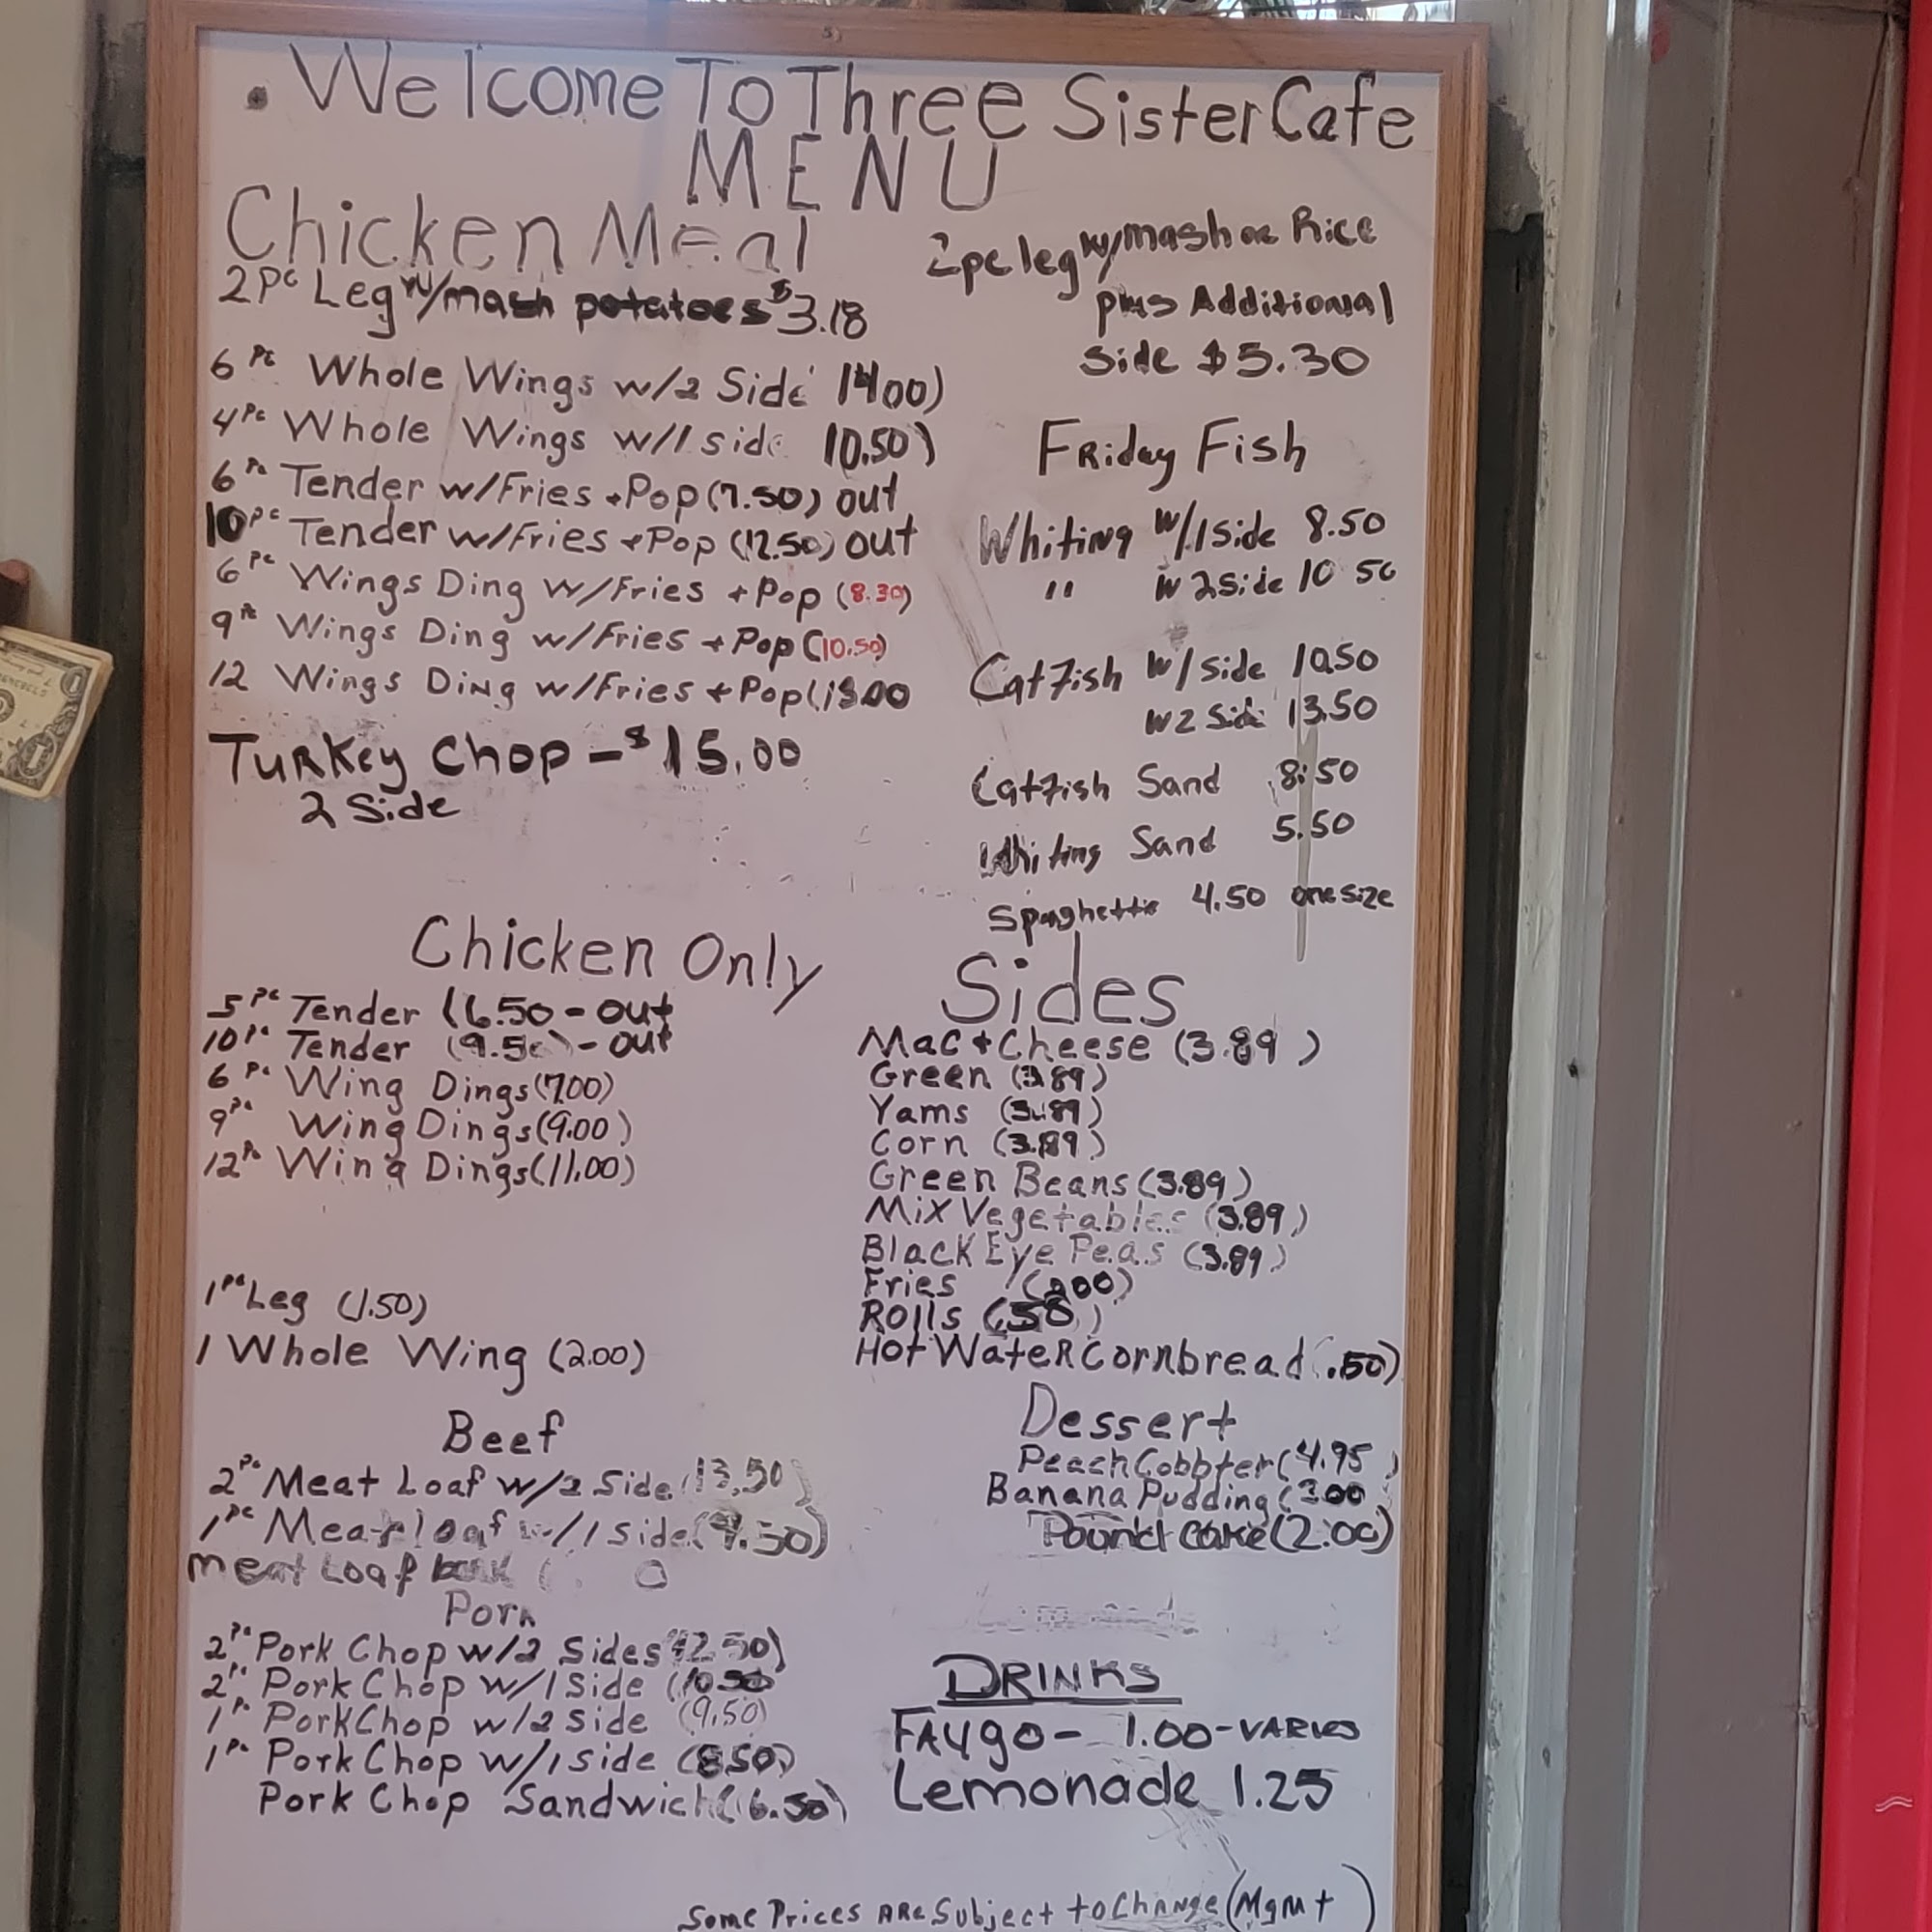 . Welcome To Three Sister Cafe
MENU
Chicken Meal
2Pc Leg w/mash potatoes $3.18
6 Pc Whole Wings w/2 Side 1400)
4Pc Whole Wings w/1 side 10.50)
6Pc Tender w/Fries +Pop (7.50) out
10Pc Tender w/Fries +Pop (12.50) out
6Pc Wings Ding w/Fries +Pop (8.30)
9Pc Wings Ding w/Fries +Pop (10.50)
12 Wings Ding w/Fries +Pop(
Turkey Chop - $15.00
2 Side
2pc leg w/mash or Rice
plus Additional
Side $5.30
Friday Fish
Whiting w/1side 8.50
" w 2side 10 50
Catfish w/side 10.50
w2 Side 13.50
Catfish Sand 8.50
Whiting Sand 5.50
Spaghetti 4.50 one size
Chicken Only
5Pc Tender (6.50 - out
10Pc Tender (9.50) - out
6 Pc Wing Dings(7.00)
9Pc Wing Dings(9.00)
12Pc Wing Dings(11.00)
1Pc Leg (1.50)
1 Whole Wing (2.00)
Beef
2Pc Meat Loaf w/2 Side (13.50)
1Pc Meatloaf w/1 side (9.50)
meat Loaf
Pork
2Pc Pork Chop w/2 Sides 12.50)
2Pc Pork Chop w/1 Side (10.50
1Pc PorkChop w/2 side (9.50)
1Pc Pork Chop w/1 side (8.50)
Pork Chop Sandwich (6.50)
Sides
Mac + Cheese (3.89)
Green (3.89)
Yams (3.89)
Corn (3.89)
Green Beans (3.89)
Mix Vegetables (3.89)
Black Eye Peas (3.89)
Fries (200)
Rolls (.50)
Hot Water Cornbread (.50)
Dessert
Peach Cobbler (4.95)
Banana Pudding (3.00
Pound cake (2.00)
DRINKS
FAYgo - 1.00 - VARIES
Lemonade 1.25
Some Prices ARE Subject to Change (Mgmt)